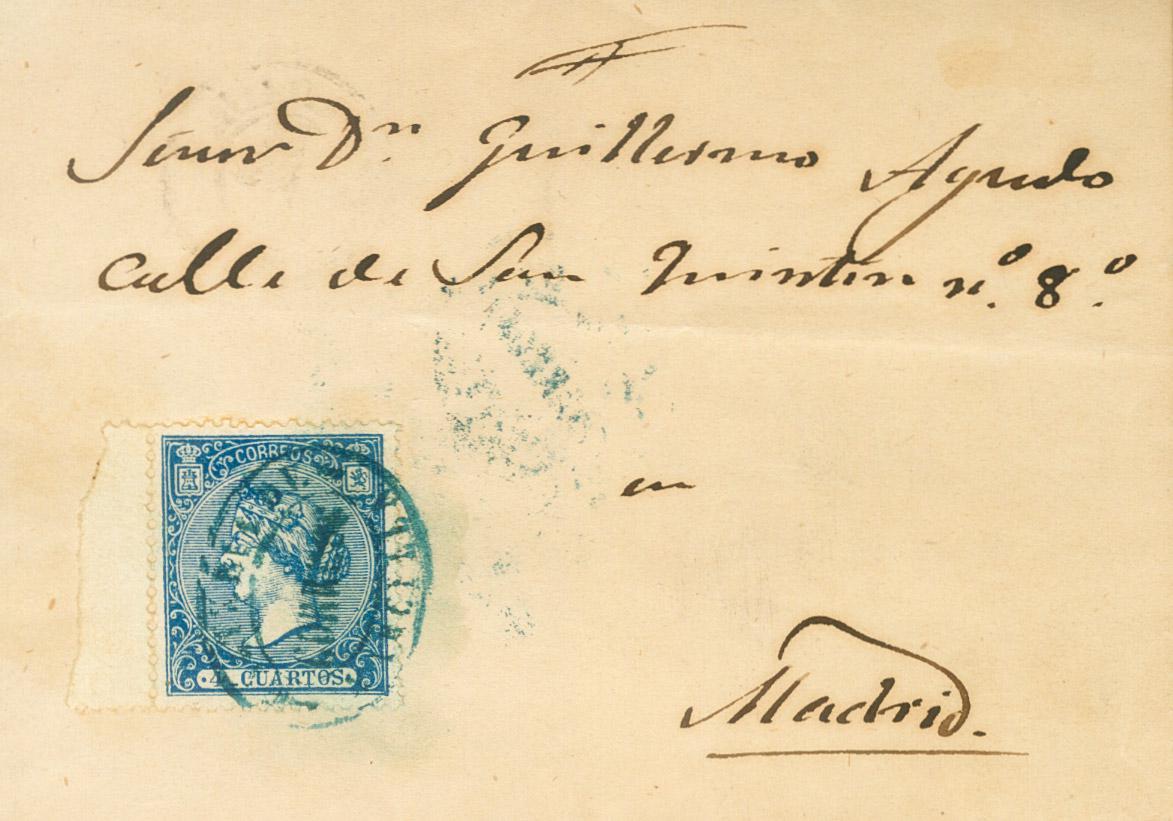 Señor Dn. Guillermo Agudo
calle de San Quintin nº. 8º.
en
Madrid.
CORREOS
4 CUARTOS